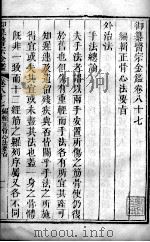 御纂醫宗金鑑卷八十七
編輯正骨心法要旨
外治法
手法總論
夫手法者謂以兩手安置所傷之筋骨使仍復
於舊也但傷有輕重而手法各有所宜其痊可
之遲速及遺留殘疾與否皆關乎手法之所施
得宜或失其宜或未盡其法也蓋一身之骨體
既非一致而十二經筋之羅列序屬又各不同